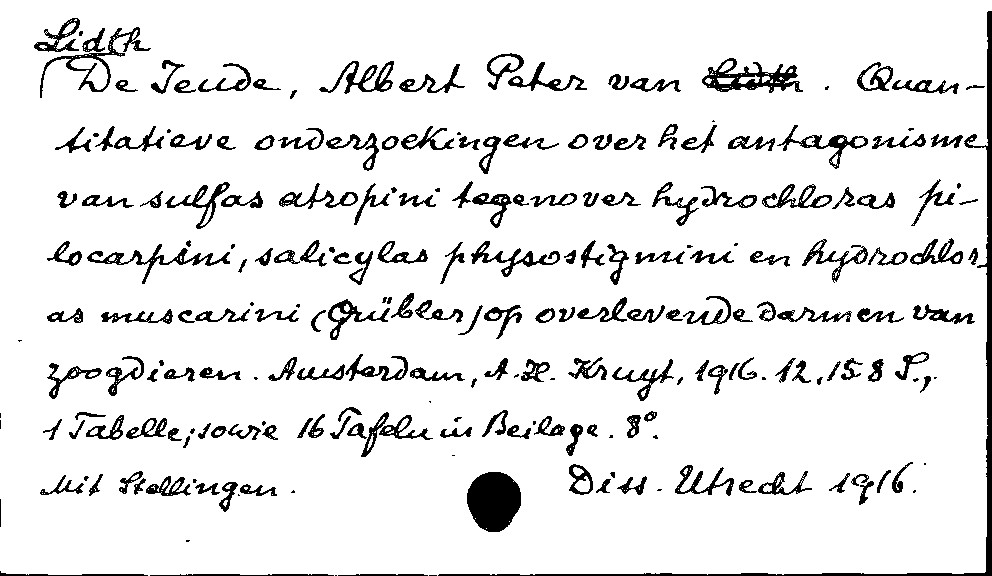 Lidth
De Jeude, Albert Peter van Lidth. Quan-
titatieve onderzoekingen over het antagonisme
van sulfas atropini tegenover hydrochloras pi-
locarpini, salicylas physostigmini en hydrochlor-
as muscarini (Grübler) op overlevende darmen van
zoogdieren. Amsterdam, A.H. Kruyt, 1916. 12, 158 S.,
1 Tabelle; sowie 16 Tafeln in Beilage. 8°.
Mit Stellingen. Diss. Utrecht 1916.